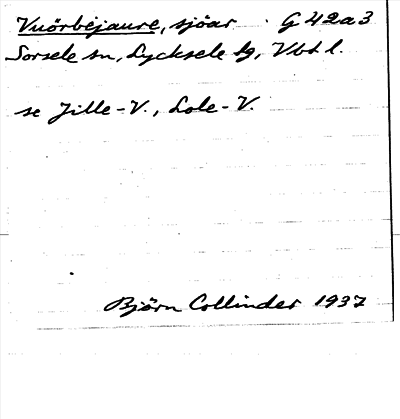 Vuörbejaure, sjöar G 42a3
Sorsele sn, Lycksele lg, Vbtl.
se Jille-V., Lole-V.
Björn Collinder 1937